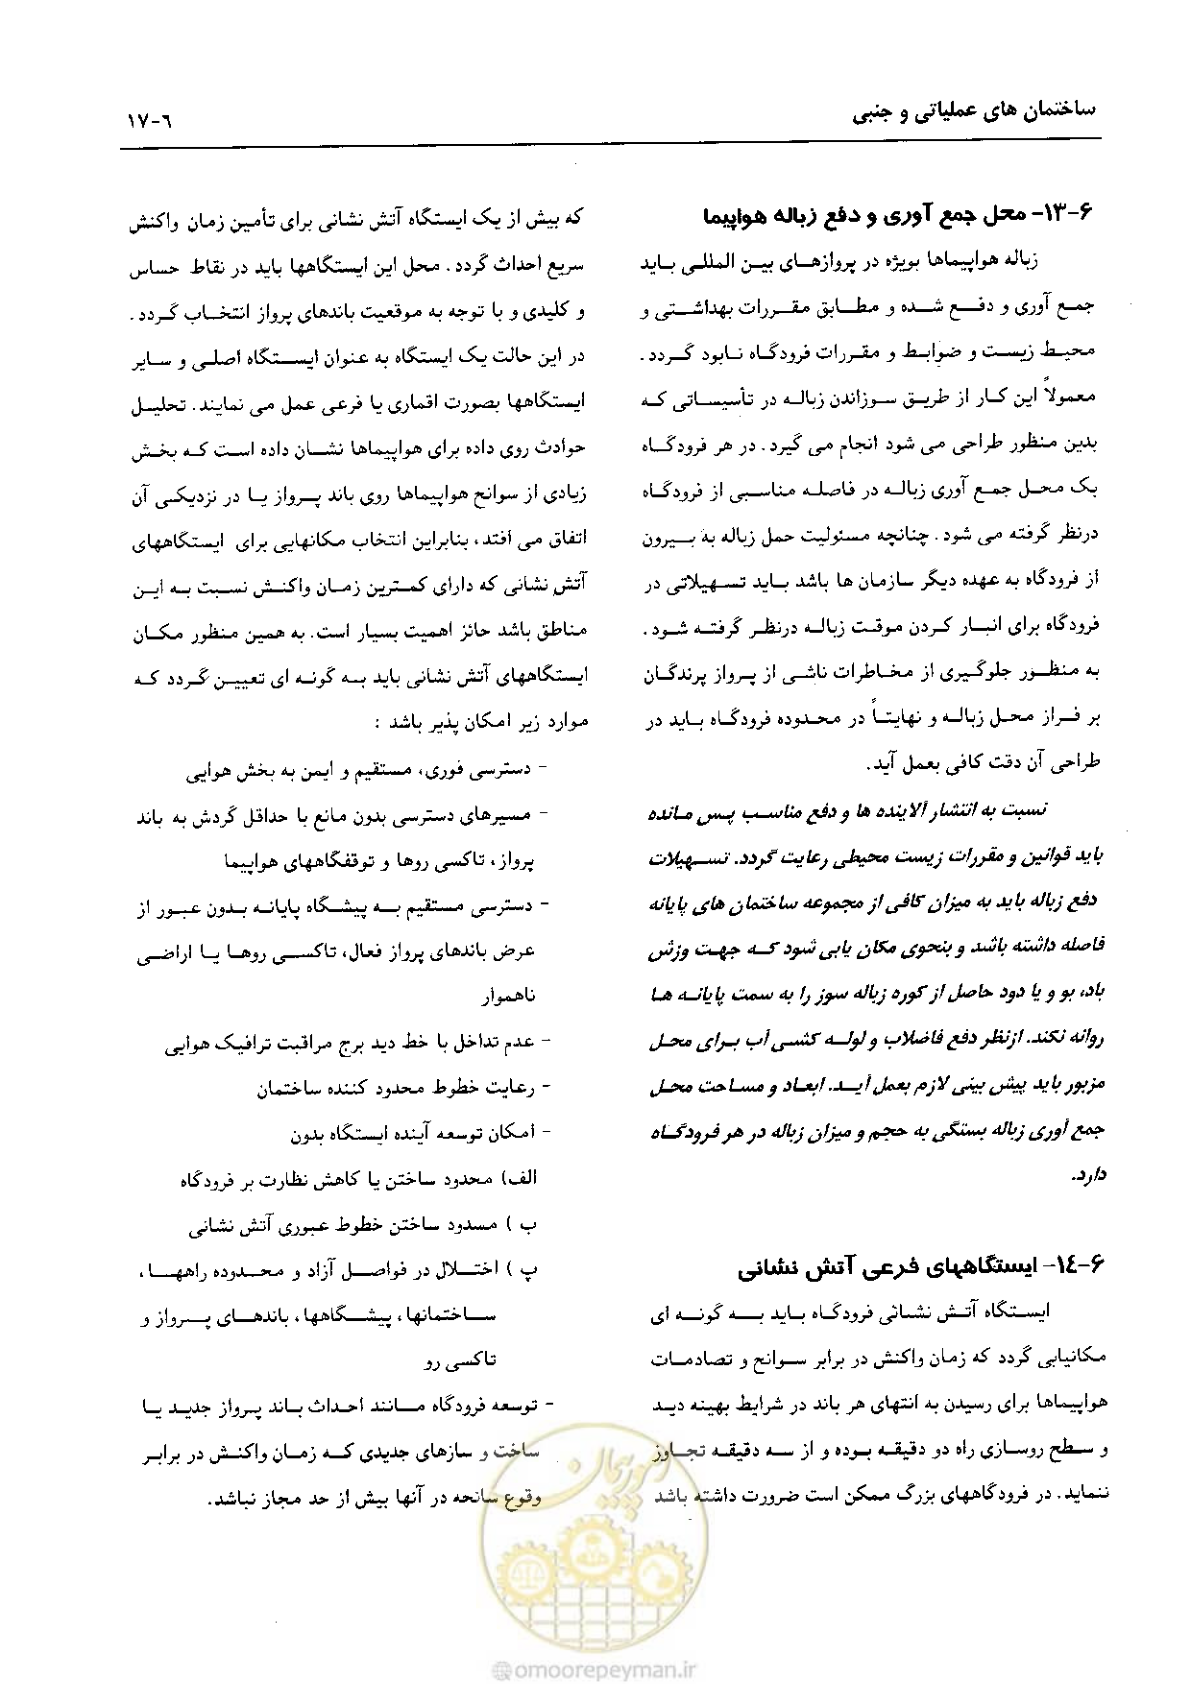 ساختمان های عملیاتی و جنبی
۱۷-۶
۱۳-۶- محل جمع آوری و دفع زباله هواپیما
زباله هواپیماها بویژه در پروازهای بین المللی باید
جمع آوری و دفع شده و مطابق مقررات بهداشتی و
محیط زیست و ضوابط و مقررات فرودگاه نابود گردد.
معمولاً این کار از طریق سوزاندن زباله در تأسیساتی که
بدین منظور طراحی می شود انجام می گیرد. در هر فرودگاه
یک محل جمع آوری زباله در فاصله مناسبی از فرودگاه
درنظر گرفته می شود. چنانچه مسئولیت حمل زباله به بیرون
از فرودگاه به عهده دیگر سازمان ها باشد باید تسهیلاتی در
فرودگاه برای انبار کردن موقت زباله درنظر گرفته شود.
به منظور جلوگیری از مخاطرات ناشی از پرواز پرندگان
بر فراز محل زباله و نهایتاً در محدوده فرودگاه باید در
طراحی آن دقت کافی بعمل آید.
نسبت به انتشار آلاینده ها و دفع مناسب پس مانده
باید قوانین و مقررات زیست محیطی رعایت گردد. تسهیلات
دفع زباله باید به میزان کافی از مجموعه ساختمان های پایانه
فاصله داشته باشد و بنحوی مکان یابی شود که جهت وزش
باد، بو و یا دود حاصل از کوره زباله سوز را به سمت پایانه ها
روانه نکند. ازنظر دفع فاضلاب و لوله کشی آب برای محل
مزبور باید پیش بینی لازم بعمل آید. ابعاد و مساحت محل
جمع آوری زباله بستگی به حجم و میزان زباله در هر فرودگاه
دارد.
۱۴-۶- ایستگاههای فرعی آتش نشانی
ایستگاه آتش نشانی فرودگاه باید به گونه ای
مکانیابی گردد که زمان واکنش در برابر سوانح و تصادمات
هواپیماها برای رسیدن به انتهای هر باند در شرایط بهینه دید
و سطح روسازی راه دو دقیقه بوده و از سه دقیقه تجاوز
ننماید. در فرودگاههای بزرگ ممکن است ضرورت داشته باشد
که بیش از یک ایستگاه آتش نشانی برای تأمین زمان واکنش
سریع احداث گردد. محل این ایستگاهها باید در نقاط حساس
و کلیدی و با توجه به موقعیت باندهای پرواز انتخاب گردد.
در این حالت یک ایستگاه به عنوان ایستگاه اصلی و سایر
ایستگاهها بصورت اقماری یا فرعی عمل می نمایند. تحلیل
حوادث روی داده برای هواپیماها نشان داده است که بخش
زیادی از سوانح هواپیماها روی باند پرواز یا در نزدیکی آن
اتفاق می افتد، بنابراین انتخاب مکانهایی برای ایستگاههای
آتش نشانی که دارای کمترین زمان واکنش نسبت به این
مناطق باشد حائز اهمیت بسیار است. به همین منظور مکان
ایستگاههای آتش نشانی باید به گونه ای تعیین گردد که
موارد زیر امکان پذیر باشد :
- دسترسی فوری، مستقیم و ایمن به بخش هوایی
- مسیرهای دسترسی بدون مانع با حداقل گردش به باند
پرواز، تاکسی روها و توقفگاههای هواپیما
- دسترسی مستقیم به پیشگاه پایانه بدون عبور از
عرض باندهای پرواز فعال، تاکسی روها یا اراضی
ناهموار
- عدم تداخل با خط دید برج مراقبت ترافیک هوایی
- رعایت خطوط محدود کننده ساختمان
- امکان توسعه آینده ایستگاه بدون
الف) محدود ساختن یا کاهش نظارت بر فرودگاه
ب ) مسدود ساختن خطوط عبوری آتش نشانی
پ ) اختلال در فواصل آزاد و محدوده راهها،
ساختمانها، پیشگاهها، باندهای پرواز و
تاکسی رو
- توسعه فرودگاه مانند احداث باند پرواز جدید یا
ساخت و سازهای جدیدی که زمان واکنش در برابر
وقوع سانحه در آنها بیش از حد مجاز نباشد.
امورپیمان
@omoorepeyman.ir